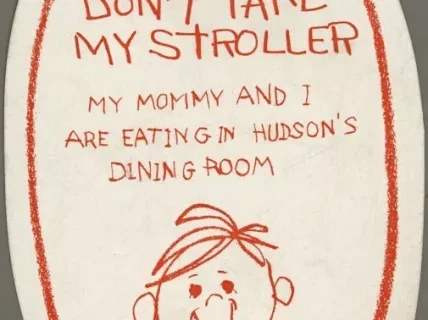 DON'T TAKE
MY STROLLER
MY MOMMY AND I
ARE EATING IN HUDSON'S
DINING ROOM